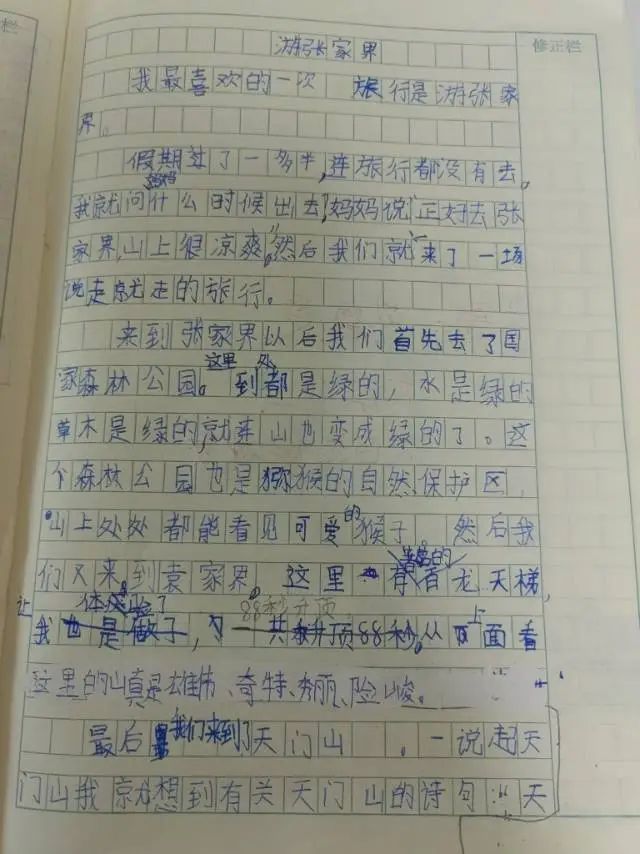 修正栏
游张家界
我最喜欢的一次 旅行是游张家
界。
假期过了一多半,连旅行都没有去。
我就问妈妈什么时候出去?妈妈说“正好去张
家界,山上很凉爽。”然后我们就来了一场
说走就走的旅行。
来到张家界以后我们首先去了国
家森林公园。这里到处都是绿的,水是绿的
草木是绿的,就连山也变成绿的了。这
个森林公园也是猕猴的自然保护区,
山上处处都能看见可爱的猴子。然后我
们又来到袁家界。这里有百龙天梯,
让我体验了88秒升顶。从上面看
这里的山真是雄伟、奇特、秀丽、险峻。
最后我们来到了天门山。一说起天
门山我就想到有关天门山的诗句:“天